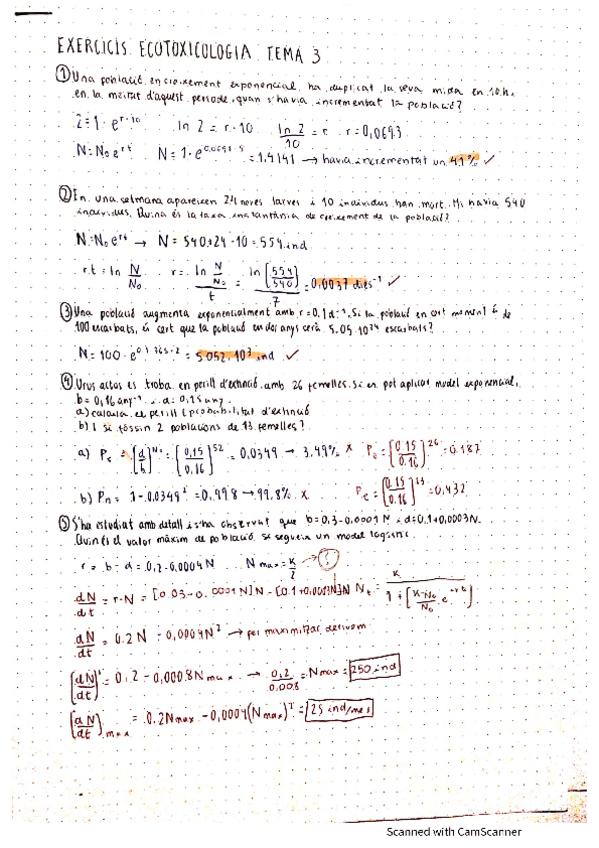 EXERCICIS ECOTOXICOLOGIA TEMA 3
① Una població en creixement exponencial ha duplicat la seva mida en 10 h.
en la meitat d'aquest període, quan s'havia incrementat la població?
2 = 1 · e^(r·10) ln 2 = r · 10 ln 2 / 10 = r r = 0,0693
N = N₀ e^(rt) N = 1 · e^(0,0693·5) = 1,4141 → havia incrementat un 41% ✓
② En una setmana apareixen 24 noves larves i 10 individus han mort. Hi havia 540
individus. Quina és la taxa instantània de creixement de la població?
N = N₀ e^(rt) → N = 540 + 24 - 10 = 554 ind
rt = ln N/N₀ r = (ln N/N₀) / t = ln [554/540] / 7 = 0,0037 dies⁻¹ ✓
③ Una població augmenta exponencialment amb r = 0,1 d⁻¹. Si la població en cert moment és de
100 escarbats, és cert que la població en dos anys serà 5.05·10³⁴ escarbats?
N = 100 · e^(0,1·365·2) = 5.052·10³ ind ✓
④ Ursus actos es troba en perill d'extinció amb 26 femelles. Si es pot aplicar model exponencial,
b = 0,16 any⁻¹ i d = 0,15 any
a) calcula el perill (probabilitat d'extinció
b) I si fossin 2 poblacions de 13 femelles?
a) P = [d/b]^N₀ = [0,15/0,16]^52 = 0,0349 → 3,49% x P = [0.15/0.16]^26 = 0.187
b) Pn = 1 - 0,0349² = 0,998 → 99,8% x P = [0.15/0.16]^13 = 0,432
⑤ S'ha estudiat amb detall i s'ha observat que b = 0,3 - 0,0001 N i d = 0,1 + 0,0003 N.
Quin és el valor màxim de població si segueix un model logístic
r = b - d = 0,2 - 0,0004 N N max = K/2 → ?
dN/dt = r·N = [0.03 - 0.0001 N] N - [0.1 + 0,0003N] N Nt = K / 1 + [K-N₀/N₀ · e^(-rt)]
dN/dt = 0.2 N - 0,0004 N² → per maximitzar derivem
[dN/dt]' = 0,2 - 0,0008 N max → 0,2/0,008 = N max = 250 ind
[dN/dt] max = 0.2 N max - 0,0004 (N max)² = 25 ind/mes
Scanned with CamScanner